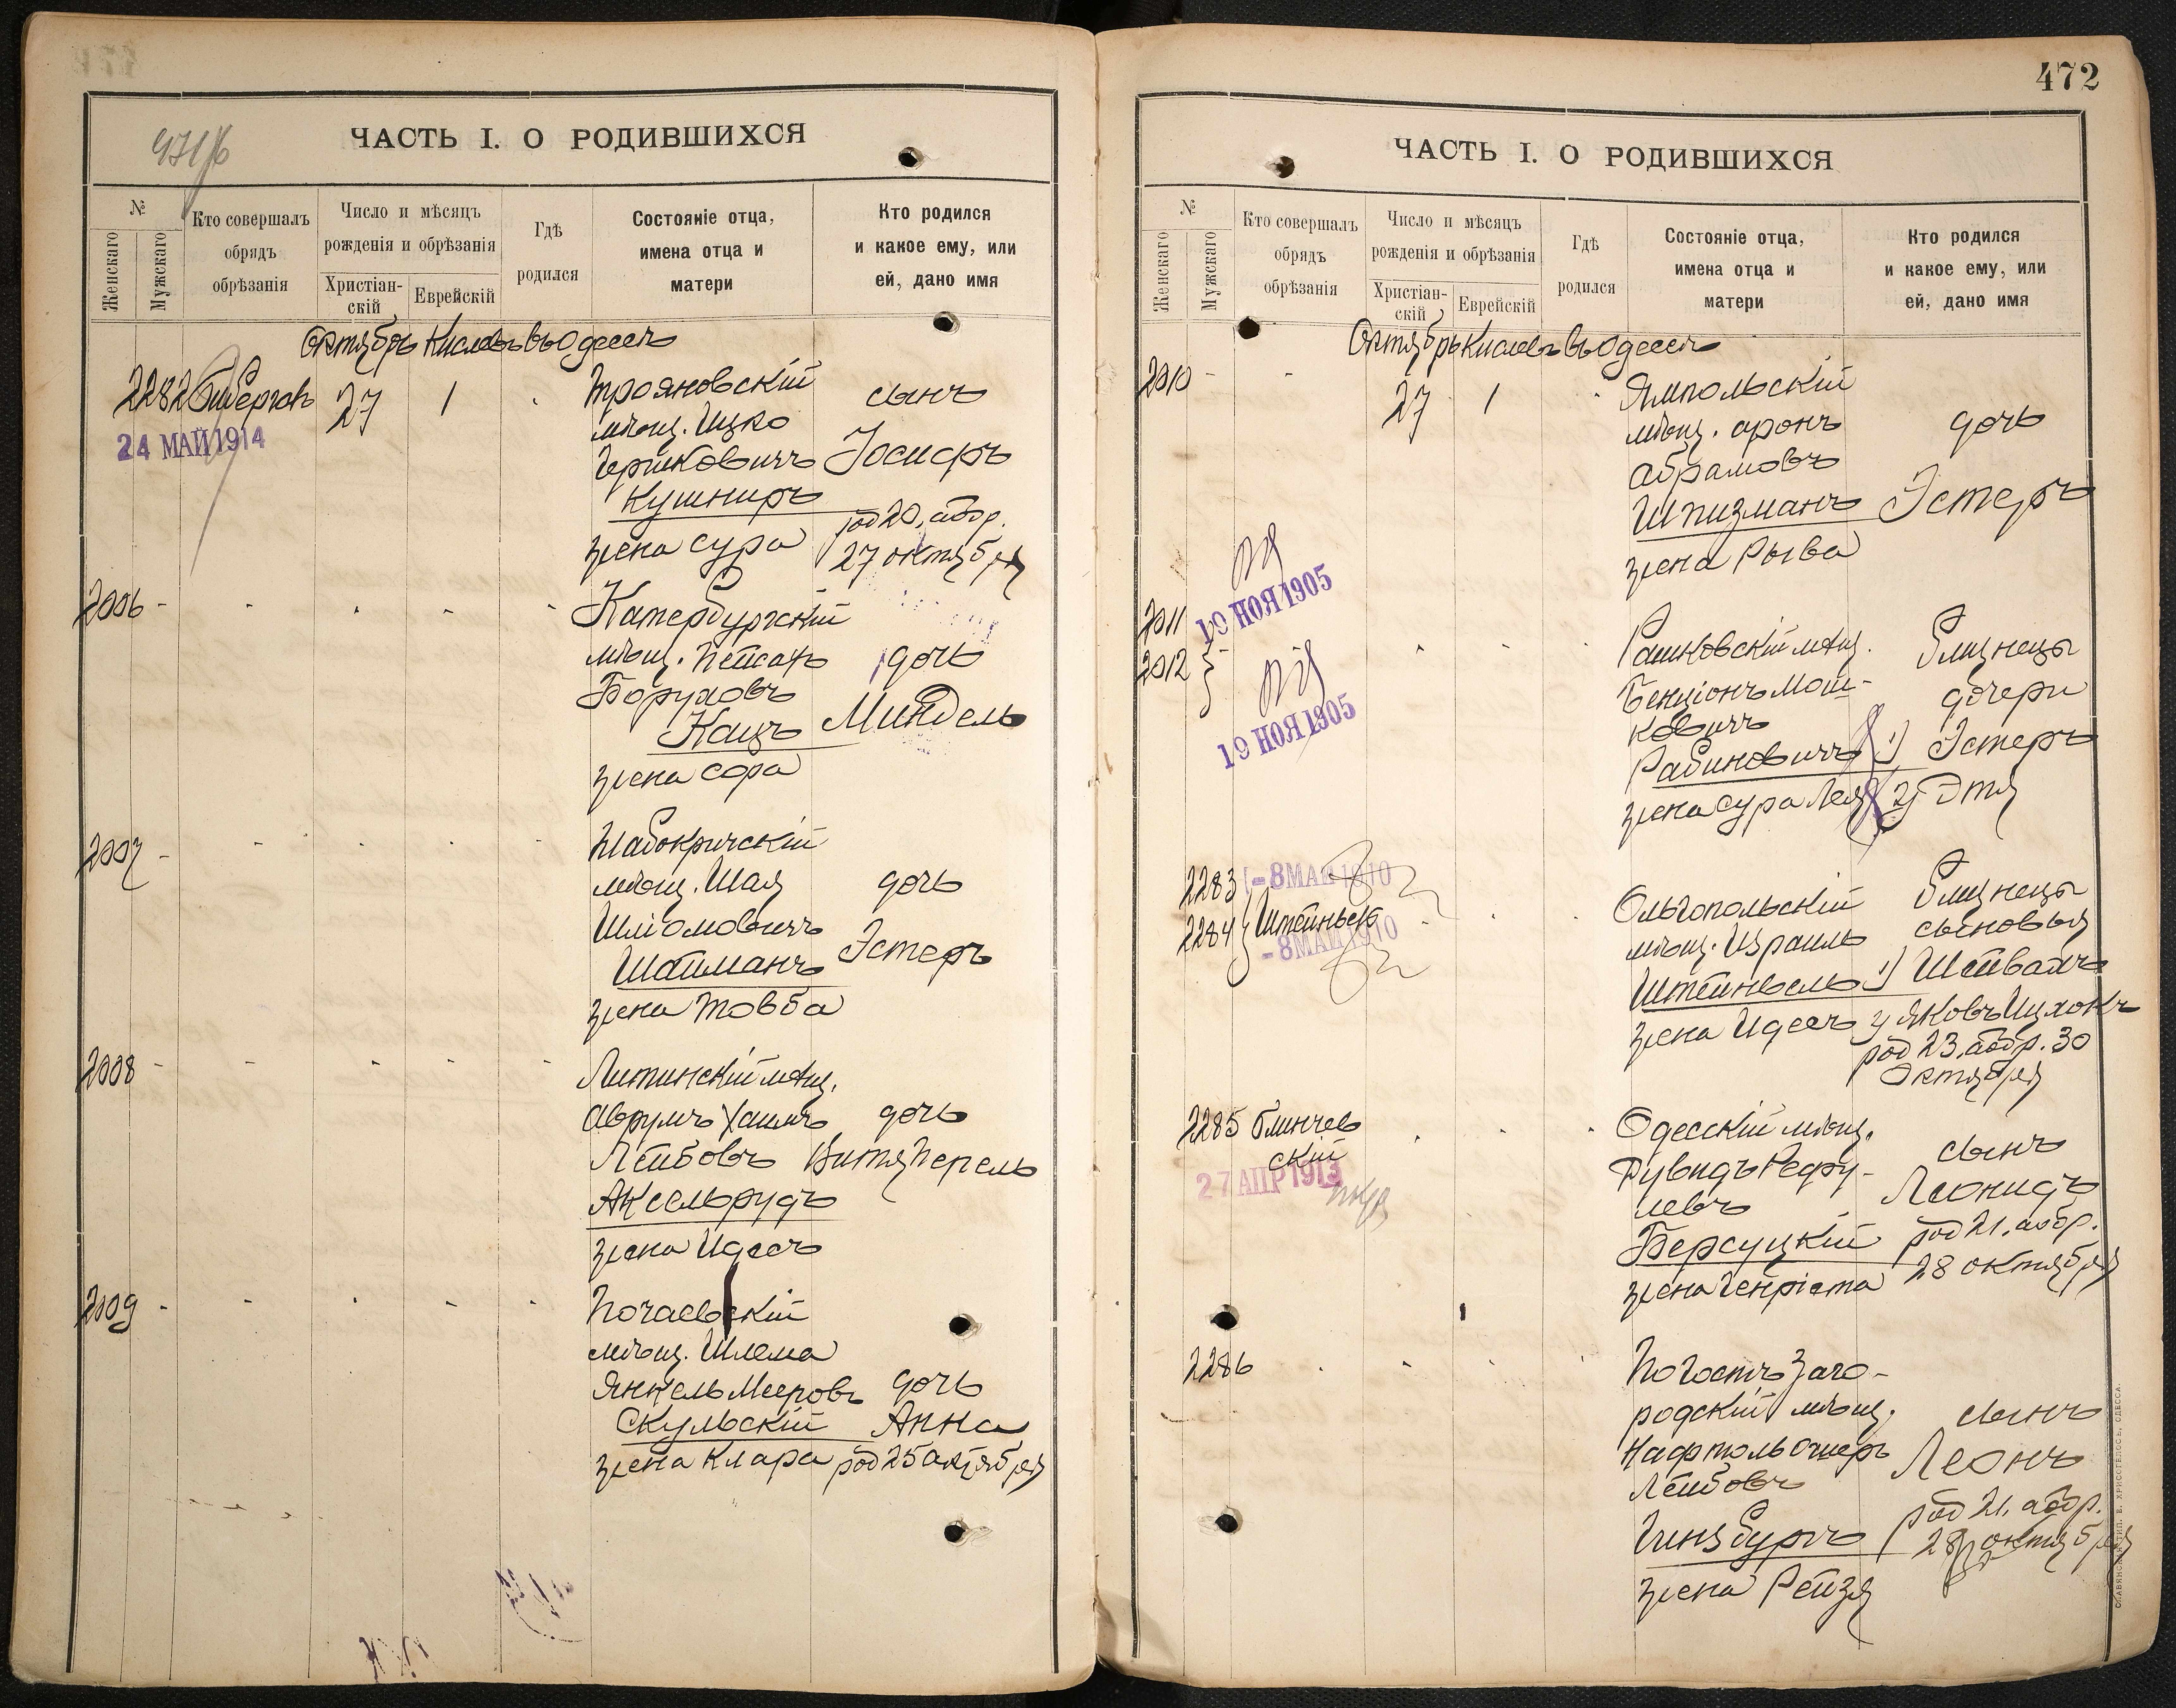 471/б
ЧАСТЬ I. О РОДИВШИХСЯ
№
Женскаго
Мужскаго
Кто совершалъ обрядъ обрѣзанія
Число и мѣсяцъ рожденія и обрѣзанія
Христіан-скій
Еврейскій
Гдѣ родился
Состояніе отца, имена отца и матери
Кто родился и какое ему, или ей, дано имя
Октябрь Кислевъ въ Одессѣ
2282 27 1
24 МАЙ 1914
Трояновскій
мѣщ. Ицко
Гершковичъ
Кушниръ
жена Сура
сынъ
Іосифъ
род 20, аобр.
27 октября
2006 - - - - -
Катербургскій
мѣщ. Пейсахъ
Боруховъ
Кацъ
жена Сора
дочь
Миндель
2007 - - - -
Шабокричскій
мѣщ. Шая
Шліомовичъ
Шайманъ
жена Товба
дочь
Эстеръ
2008 - - - - -
Литинскій мѣщ.
Аврумъ Хаимъ
Лейбовъ
Аксельрудъ
жена Идесъ
дочь
Витя Перель
2009 - - - - -
Почаевскій
мѣщ. Шлема
Янкель Мееровъ
Скульскій
жена Клара
дочь
Анна
род 25 октября
472
ЧАСТЬ I. О РОДИВШИХСЯ
№
Женскаго
Мужскаго
Кто совершалъ обрядъ обрѣзанія
Число и мѣсяцъ рожденія и обрѣзанія
Христіан-скій
Еврейскій
Гдѣ родился
Состояніе отца, имена отца и матери
Кто родился и какое ему, или ей, дано имя
Октябрь Кислевъ въ Одессѣ
2010 - - 27 1
Ямпольскій
мѣщ. Аронъ
Абрамовъ
Шпизманъ
жена Рыва
дочь
Эстеръ
2011
2012
19 НОЯ 1905
19 НОЯ 1905
Рашковскій мѣщ.
Бенціонъ Мош-
ковичъ
Рабиновичъ
жена Сура Лея
Близнецы
дочери
1) Эстеръ
2) Этя
2283
2284 Штейнвель
- 8 МАЕ 1910
- 8 МАЕ 1910
Ольгопольскій
мѣщ. Израиль
Штейнвель
жена Идесъ
Близнецы
сыновья
1)
2) Яковъ Ицхокъ
род 23, аобр. 30
октября
2285 Блинчев
скій
27 АПР 1913
Одесскій мѣщ.
Рувидъ Рефу-
левъ
Берсуцкій
жена Генріета
сынъ
Леонидъ
род 21, аобр.
28 октября
2286
Погостъ Заго-
родскій мѣщ.
Нафтоль Ошеръ
Лейбовъ
Гинзбургъ
жена Рейзя
сынъ
Леонъ
род 21, аобр.
28 октября
СЛАВЯНСК. ТИП. Е. ХРИСОГЕЛОСЪ, ОДЕССА.